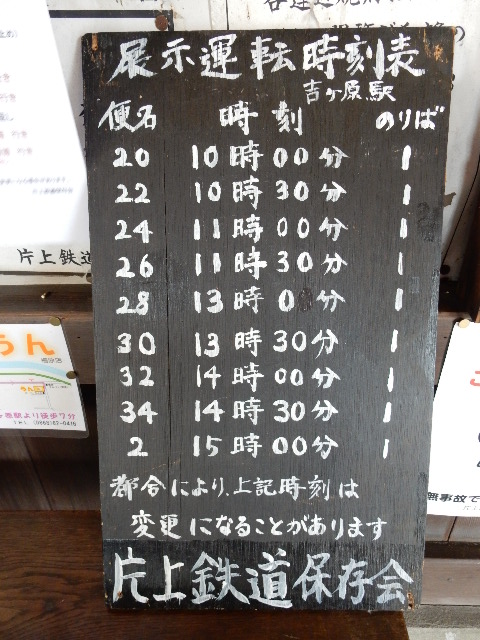 展示運転時刻表
吉ヶ原駅
便名 時刻 のりば
20 10時00分 1
22 10時30分 1
24 11時00分 1
26 11時30分 1
28 13時0分 1
30 13時30分 1
32 14時00分 1
34 14時30分 1
2 15時00分 1
都合により、上記時刻は
変更になることがあります
片上鉄道保存会
片上鉄道
うん
駅より徒歩7分
無事故で